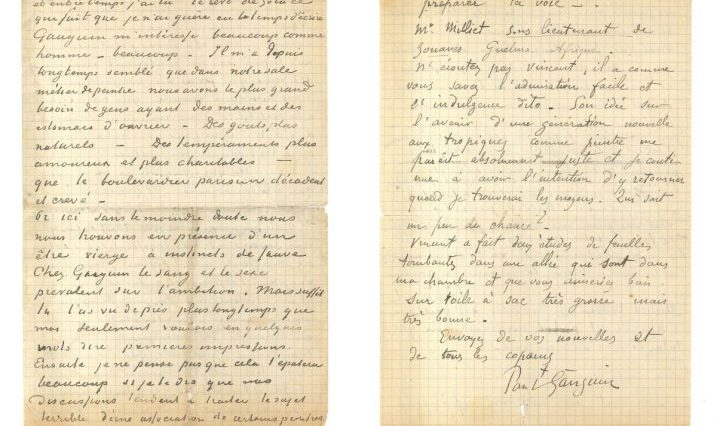 et entre temps j'ai lu le rêve de Zola ce
qui fait que je n'ai guère eu le temps d'écrire
Gauguin m'intéresse beaucoup comme
homme - beaucoup. Il m'a depuis
longtemps semblé que dans notre sale
métier de peintre nous avons le plus grand
besoin de gens ayant des mains et des
estomacs d'ouvrier - Des gouts plus
naturels - Des tempéraments plus
amoureux et plus charitables -
que le boulevardier parisien décadent
et crevé -
Or ici sans le moindre doute nous
nous trouvons en présence d'un
être vierge à instincts de sauvage
Chez Gauguin le sang et le sexe
prévalent sur l'ambition. Mais suffit
tu l'as vu de près plus longtemps que
moi seulement voulais en quelques
mots dire premières impressions.
Ensuite je ne pense pas que cela t'épatera
beaucoup si je te dis que nos
discussions tendent à traiter le sujet
terrible d'une association de certains peintres
préparer la voie -
Mr Milliet sous lieutenant de
Zouaves Guelma Afrique.
N'écoutez pas Vincent, il a comme
vous savez l'admiration facile et
l'indulgence dito - Son idée sur
l'avenir d'une génération nouvelle
aux tropiques comme peintre me
parait absolument juste et je conti
nue à avoir l'intention d'y retourner
quand je trouverai les moyens. Qui sait
un peu de chance?
Vincent a fait deux études de feuilles
tombantes dans une allée qui sont dans
ma chambre et que vous aimeriez bien
Sur toile à sac très grosse mais
très bonne -
Envoyez de vos nouvelles et
de tous les copains
Paul Gauguin